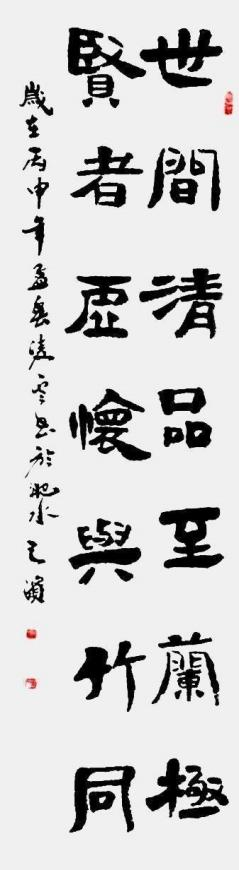 世間清品至蘭極
賢者虛懷與竹同
歲在丙申年孟春凌雲書於肥水之濱